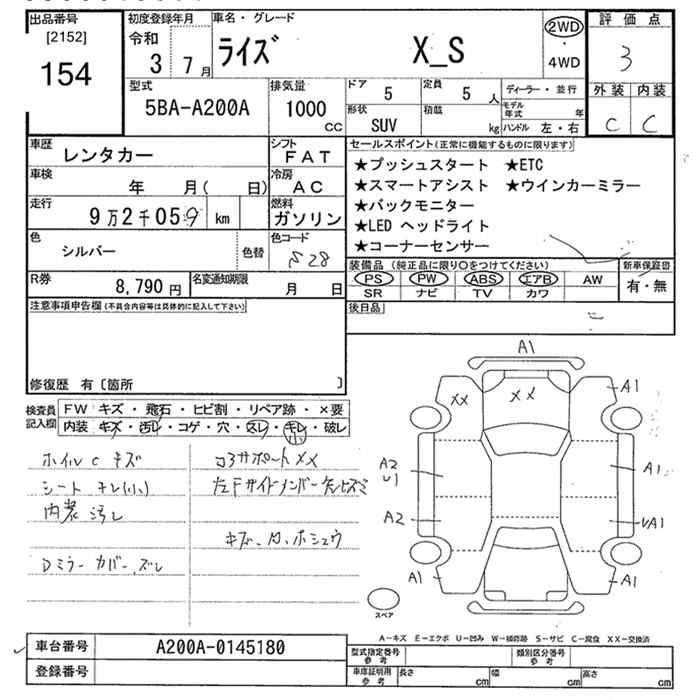 出品番号
[2152]
154
初度登録年月
令和
3 7月
車名・グレード
ライズ X_S
2WD
・
4WD
評価点
3
外装 内装
C C
型式
5BA-A200A
排気量
1000
CC
ドア
5
定員
5 人
形状
SUV
積載
kg
ディーラー・並行
モデル年式 年
ハンドル 左・右
車歴
レンタカー
シフト
FAT
車検
年 月( 日)
冷房
AC
走行
9万2千059 km
燃料
ガソリン
色
シルバー
色替
色コード
S28
R券
8,790円
名変通知期限
月 日
セールスポイント(正常に機能するものに限ります)
★プッシュスタート ★ETC
★スマートアシスト ★ウインカーミラー
★バックモニター
★LED ヘッドライト
★コーナーセンサー
装備品(純正品に限り〇をつけてください)
PS PW ABS エアB AW
SR ナビ TV カワ
新車保証書
有・無
後日品
注意事項申告欄(不具合内容等は具体的に記入して下さい)
修復歴 有〔箇所 〕
検査員
記入欄
FW キズ・飛石・ヒビ割・リペア跡・×要
内装 キズ・汚レ・コゲ・穴・スレ・キレ・破レ
小
ホイルC キズ
シート キレ(小)
内装 汚レ
Dミラーカバー、ズレ
コアサポートXX
左Fサイドメンバー先ヒズミ
A1
XX
XX
A1
A2
U1
A1
A2
A1
A1
A1
スペア
A-キズ E-エクボ U-凹み W-補修跡 S-サビ C-腐食 XX-交換済
車台番号
A200A-0145180
登録番号
型式指定番号
参考
類別区分番号
参考
車庫証明用
参考
長さ cm
幅 cm
高さ cm